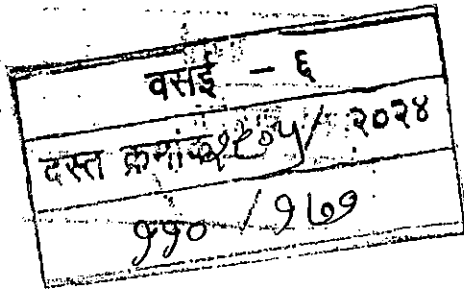 वसई - ६
दस्त क्रमांक / २०२४
११० / १७१